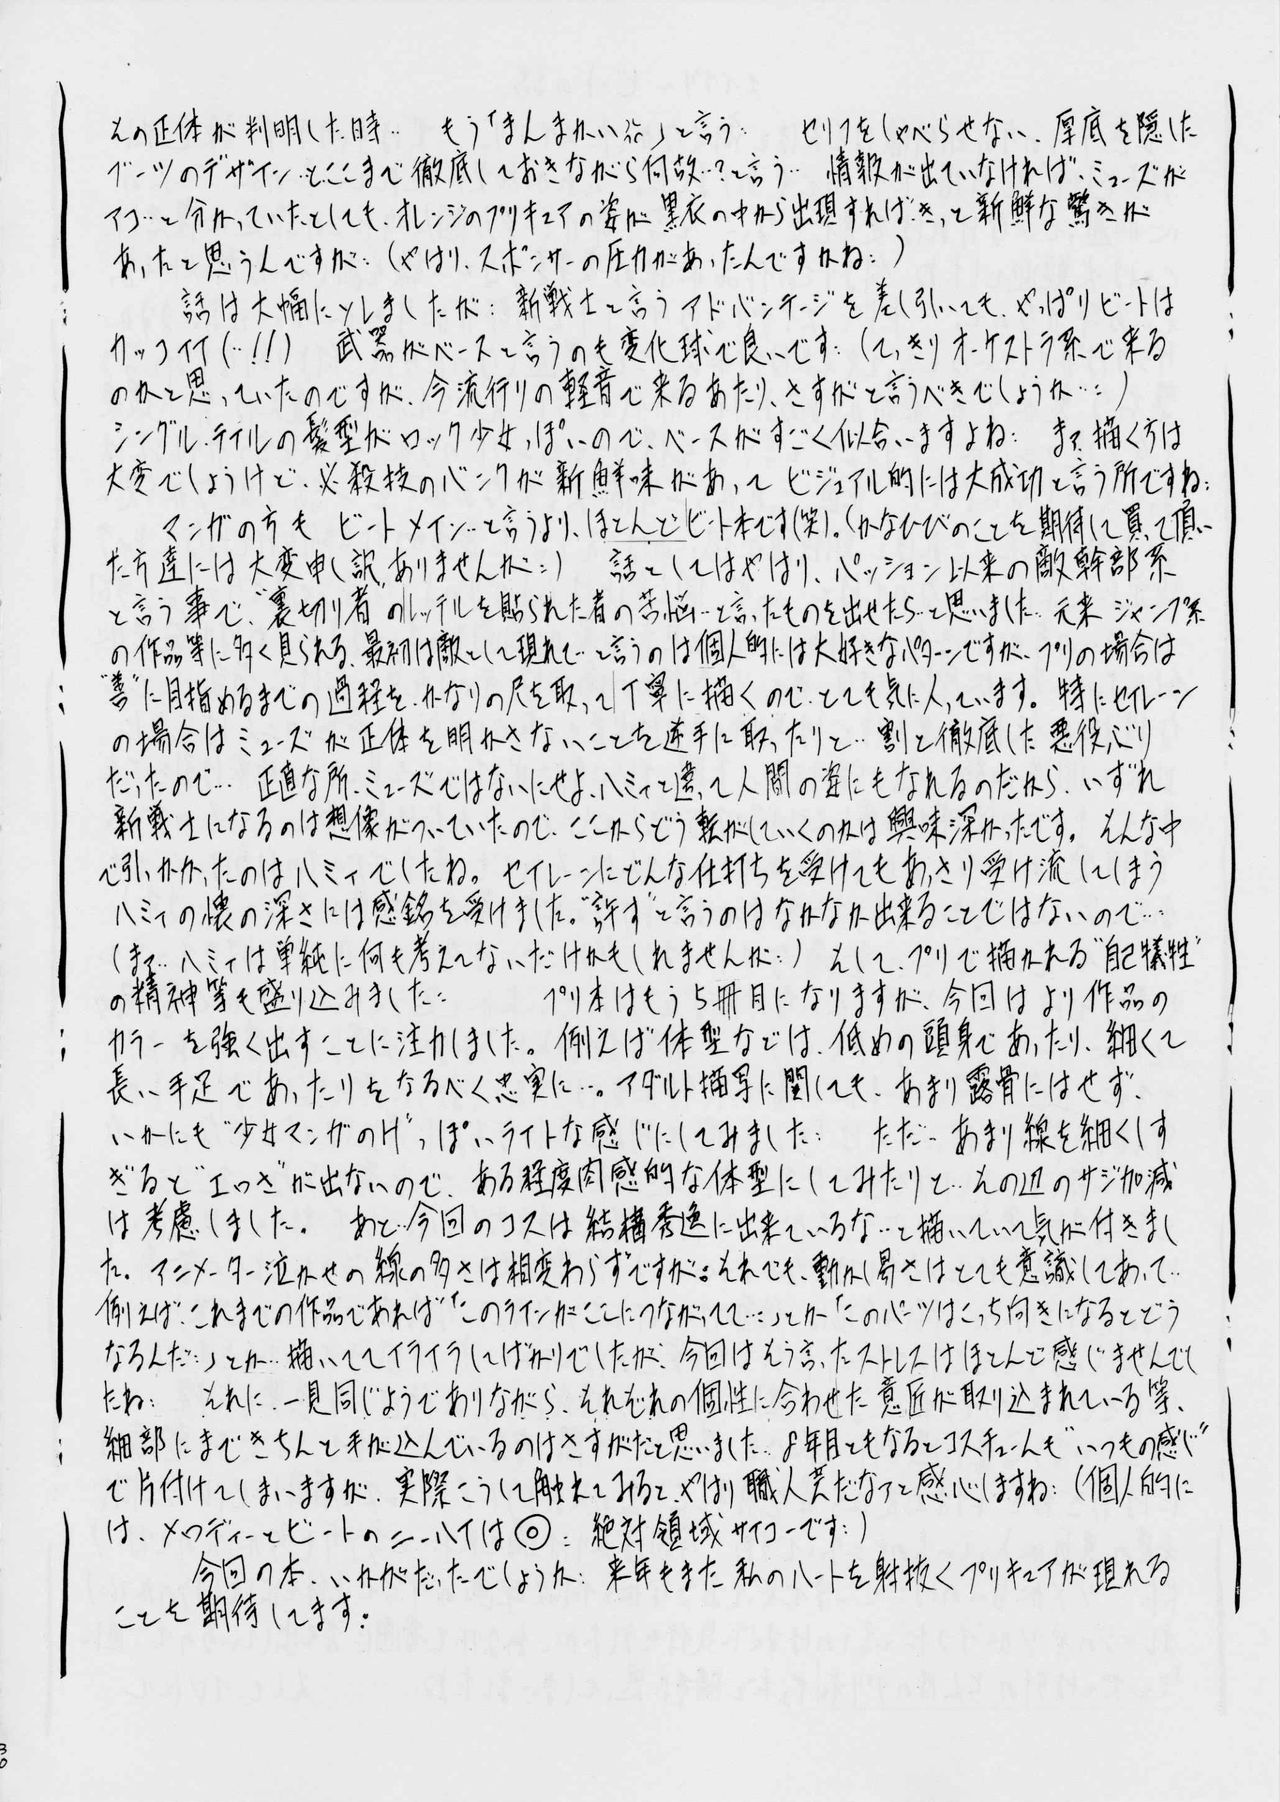 その正体が判明した時… もう「まんまかい!!」と言う… セリフをしゃべらせない、厚底を隠した
ブーツのデザイン…とここまで徹底しておきながら何故…?と言う… 情報が出ていなければ、ミューズが
アコ…と分かっていたとしても、オレンジのプリキュアの姿が黒衣の中から出現すれば、きっと新鮮な驚きが
あったと思うんですが…(やはり、スポンサーの圧力があったんですかね…)
話は大幅にソレましたが… 新戦士と言うアドバンテージを差し引いても、やっぱりビートは
カッコイイ(…!!) 武器がベースと言うのも変化球で良いです…(てっきりオーケストラ系で来る
のかと思っていたのですが、今流行りの軽音で来るあたり、さすがと言うべきでしょうか…)
シングルテイルの髪型がロック少女っぽいので、ベースがすごく似合いますよね… まァ、描く方は
大変でしょうけど、必殺技のバンクが新鮮味があってビジュアル的には大成功と言う所ですね…
マンガの方も ビートメイン…と言うより、ほとんどビート本です(笑)。(かなひびのことを期待して買って頂い
た方達には大変申し訳ありませんが…) 話としてはやはり、パッション以来の敵幹部系
と言う事で、"裏切り者"のレッテルを貼られた者の苦悩…と言ったものを出せたら…と思いました… 元来ジャンプ系
の作品等に多く見られる、最初は敵として現れて…と言うのは個人的には大好きなパターンですが、プリの場合は
"善"に目指めるまでの過程を、かなりの尺を取って丁寧に描くので、とても気に入っています。特にセイレーン
の場合はミューズが正体を明かさないことを逆手に取ったりと… 割と徹底した悪役ぶり
だったので… 正直な所、ミューズではないにせよ、ハミィと違って人間の姿にもなれるのだから、いずれ
新戦士になるのは想像がついていたので、ここからどう転がしていくのかは興味深かったです。そんな中
で引っかかったのはハミィでしたね。セイレーンにどんな仕打ちを受けてもあっさり受け流してしまう
ハミィの懐の深さには感銘を受けました。"許す"と言うのはなかなか出来ることではないので…
(まァ… ハミィは単純に何も考えてないだけかもしれませんが…) そして、プリで描かれる"自己犠牲"
の精神等も盛り込みました… プリ本はもう5冊目になりますが、今回はより作品の
カラーを強く出すことに注力しました。例えば体型などは、低めの頭身であったり、細くて
長い手足であったりをなるべく忠実に…。アダルト描写に関しても、あまり露骨にはせず、
いかにも"少女マンガのH"っぽいライトな感じにしてみました… ただ… あまり線を細くしす
ぎると"エロさ"が出ないので、ある程度肉感的な体型にしてみたりと… その辺のサジ加減
は考慮しました。 あと…今回のコスは結構秀逸に出来ているな…と描いていて気が付きまし
た。アニメーター泣かせの線の多さは相変わらずですが。それでも、動かし易さはとても意識してあって…
例えば、これまでの作品であれば「このラインがここにつながってて…」とか「このパーツはこっち向きになるとどう
なるんだ…」とか…描いててイライラしてばかりでしたが、今回はそう言ったストレスはほとんど感じませんでし
たね… それに、一見同じようでありながら、それぞれの個性に合わせた意匠が取り込まれている等、
細部にまできちんと手が込んでいるのはさすがだと思いました… 8年目ともなるとコスチュームも"いつもの感じ"
で片付けてしまいますが、実際こうして触れてみると、やはり職人芸だなァと感心しますね…(個人的に
は、メロディーとビートのニーハイは◎… 絶対領域サイコーです…)
今回の本、いかがだったでしょうか… 来年もまた私のハートを射抜くプリキュアが現れる
ことを期待してます。
30